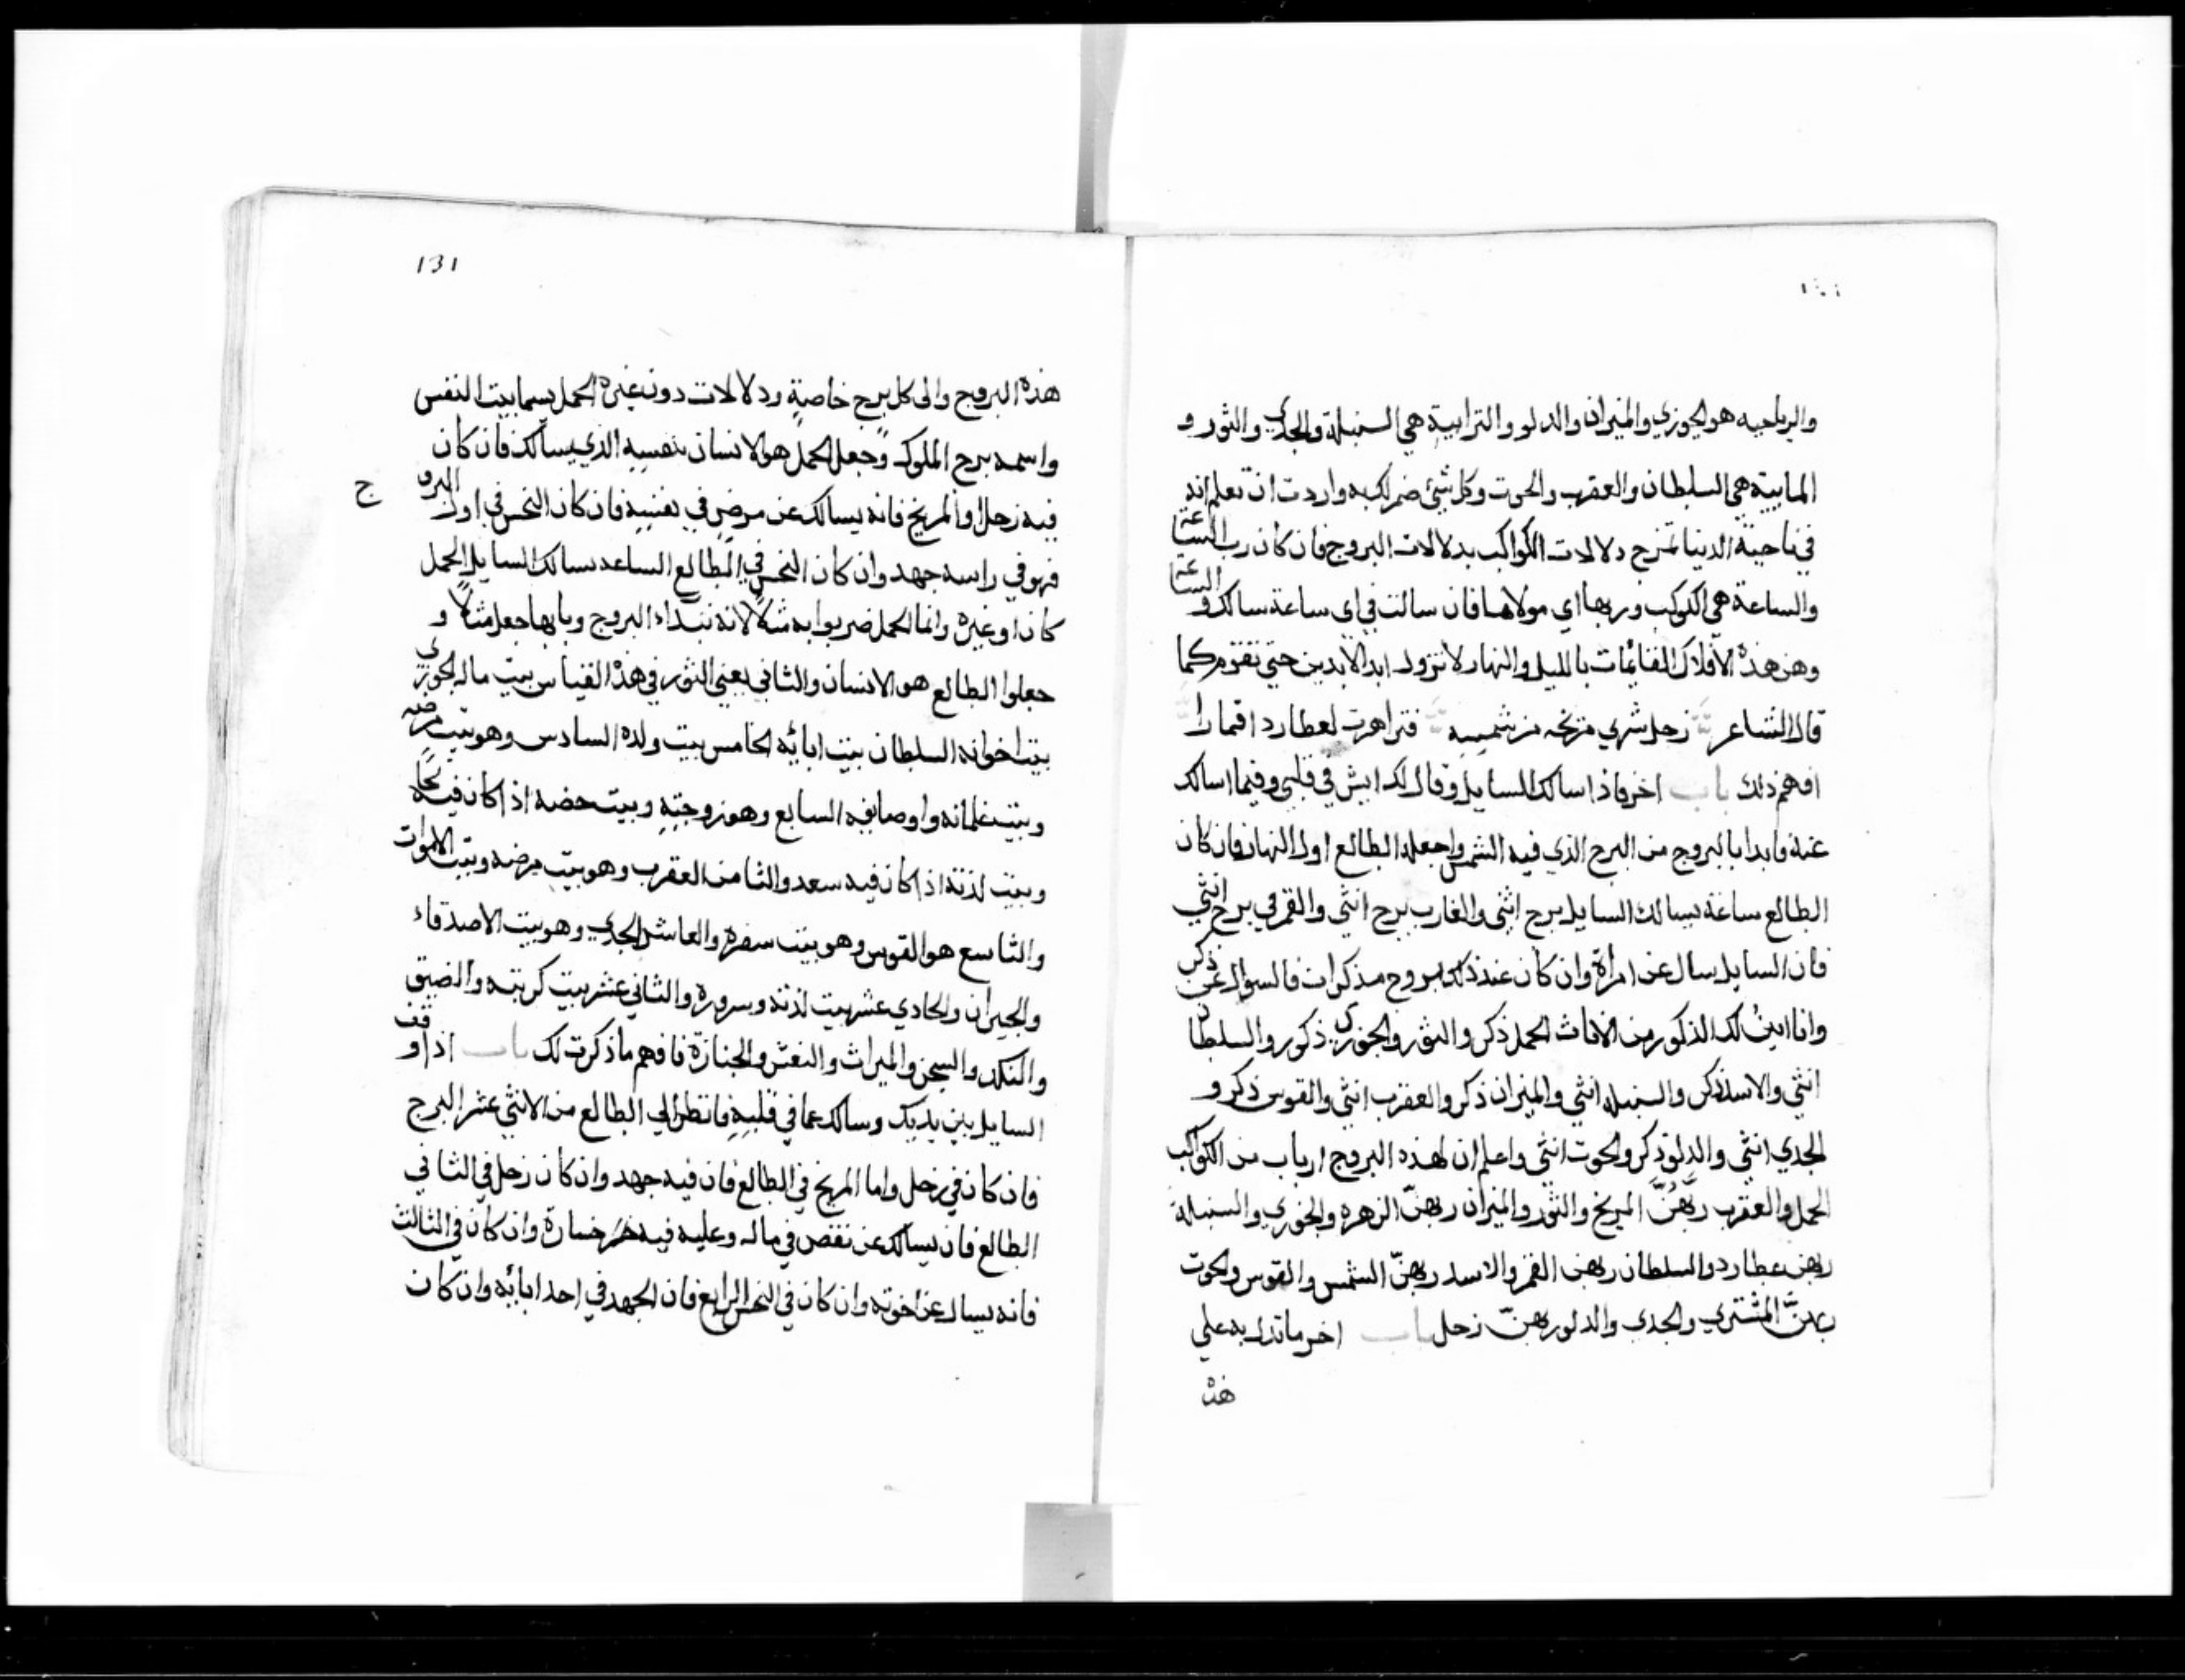 والرياحيه هو الجوزي والميزان والدلو والترابية هي السنبلة والجدي والثور و
المابية هي السلطان والعقرب والحوت وكل شيْ ضمر لك به واردت ان تعلم انه
في ناحية الدنيا تمزج دلالات الكواكب بدلالات البروج فان كان رب الساعة
والساعة هي الكوكب وربها اي مولاها فان سالت في اي ساعة سالك و الساعة
وهن هذه الافلاك القائمات بالليل والنهار لا تزول ابد الابدين حتي تقوم كما
قال الشاعر زحل شري مريخه من شمسه فتزاهرت لعطارد اقمارا
افهم ذلك باب اخر فاذا سالك السايل وقال لك ايش في قلبي وفيما اسالك
عنه فابدا بالبروج من البرج الذي فيه الشمس واجعله الطالع اول النهار فان كان
الطالع ساعة يسالك السايل برج انثي والغارب برج انثي والقمر في برج انثي
فان السايل سال عن امراة وان كان عند ذلك بروج مذكرات فالسوال عن ذكر
وانا ابين لك الذكور من الاناث الحمل ذكر والثور والجوزي ذكور والسلطان
انثي والاسد ذكر والسنبله انثي والميزان ذكر والعقرب انثي والقوس ذكر و
الجدي انثي والدلو ذكر والحوت انثي واعلم ان لهذه البروج ارباب من الكواكب
الحمل والعقرب ربهنّ المريخ والثور والميزان ربهنّ الزهره والجوزي والسنبلة
ربهن عطارد والسلطان ربهن القمر والاسد ربهنّ الشمس والقوس والحوت
ربهنّ المشتري والجدي والدلو ربهنّ زحل باب اخر ما تدل به علي
هذه
131
هذه البروج والى كل برج خاصةٍ ودلالات دون غيره الحمل يسما بيت النفس
واسمه برج الملوك وجعل الحمل هو الانسان بنفسه الذي يسالك فان كان
فيه زحل او المريخ فانه يسالك عن مرضٍ في نفسه فان كان النحس في اول البروج
فهو في راسه جهد وان كان النحس في الطالع الساعه يسالك السايل الحمل
كان او غيره وانما الحمل ضربوا به مثلاً لانه نبتداء البروج وبابها جعل مثلاً و
جعلوا الطالع هو الانسان والثاني يعني الثور في هذه القياس بيت ماله الجوزي
بيت اخوانه السلطان بيت ابائه الخامس بيت ولده السادس وهو بيت مرضه
وبيت غلمانه واوصافيه السابع وهو زوجته وبيت حضه اذا كان فيه
وبيت لذته اذا كان فيه سعد والثامن العقرب وهو بيت مرضه وبيت الاموات
والتاسع هو القوس وهو بيت سفره والعاشر الجدي وهو بيت الاصدقاء
والجيران والحادي عشر بيت لذته وسروره والثاني عشر بيت كربته والضيق
والنكد والسجن والميراث والنعش والجنازة فافهم ما ذكرت لك باب اذا وقف
السايل بين يديك وسالك عما في قلبه فانظر الي الطالع من الاثني عشر البرج
فان كان في زحل واما المريخ في الطالع فان فيه جهد وان كان زحل في الثاني
الطالع فان يسالك عن نقص في ماله وعليه فيه خسارة وان كان في الثالث
فانه يسال عن اخوته وان كان في النحس الرابع فان الجهد في احد ابائه وان كان